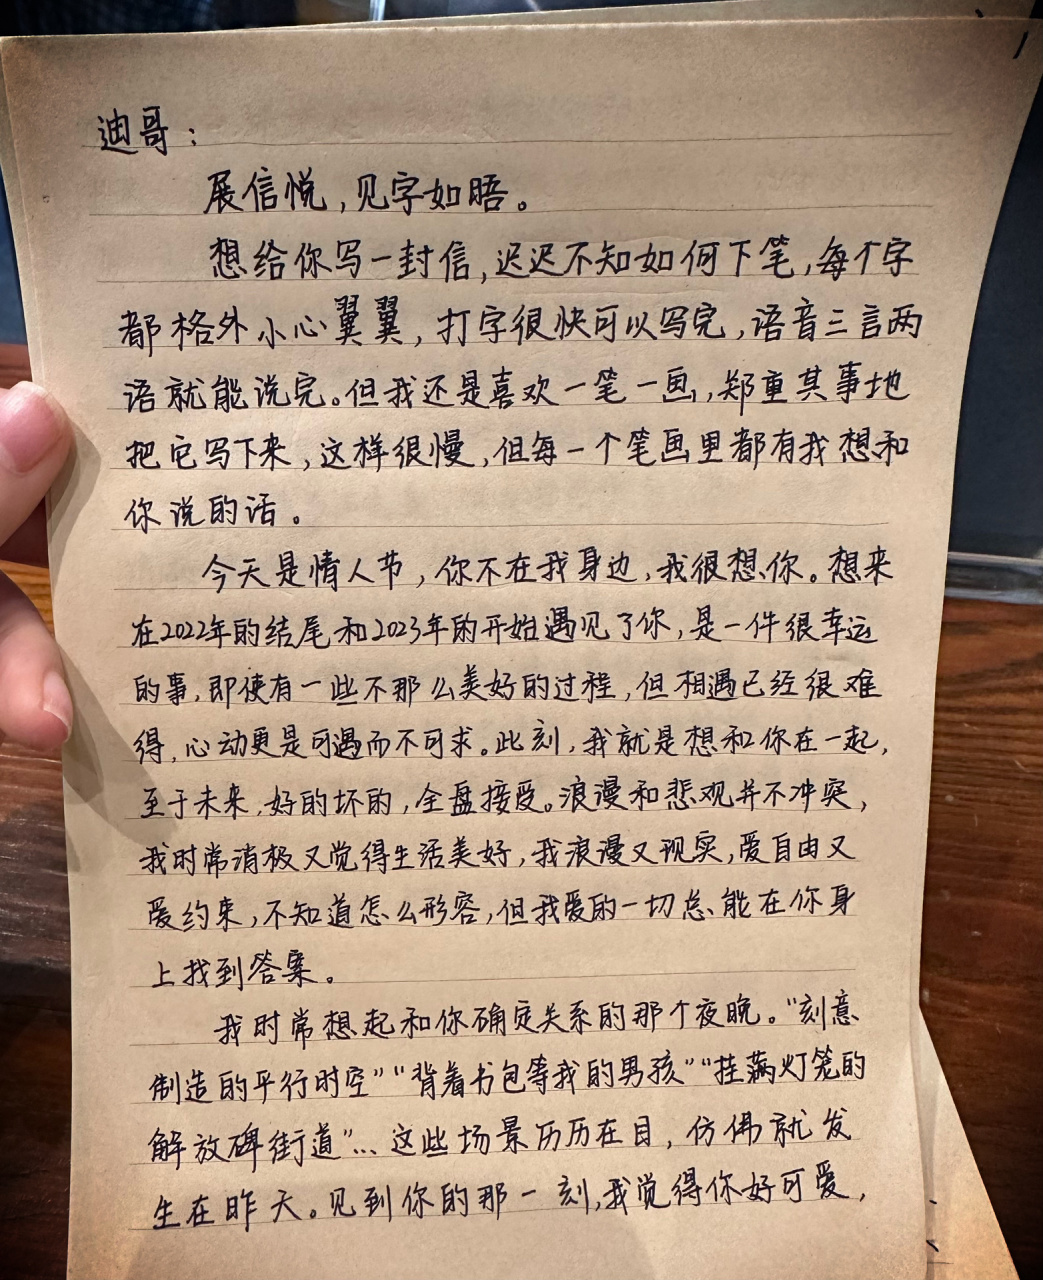 迪哥：
展信悦，见字如晤。
想给你写一封信，迟迟不知如何下笔，每个字
都格外小心翼翼，打字很快可以写完，语音三言两
语就能说完。但我还是喜欢一笔一画，郑重其事地
把它写下来，这样很慢，但每一个笔画里都有我想和
你说的话。
今天是情人节，你不在我身边，我很想你。想来
在2022年的结尾和2023年的开始遇见了你，是一件很幸运
的事，即使有一些不那么美好的过程，但相遇已经很难
得，心动更是可遇而不可求。此刻，我就是想和你在一起，
至于未来，好的坏的，全盘接受。浪漫和悲观并不冲突，
我时常消极又觉得生活美好，我浪漫又现实，爱自由又
爱约束，不知道怎么形容，但我爱的一切总能在你身
上找到答案。
我时常想起和你确定关系的那个夜晚。“刻意
制造的平行时空”“背着书包等我的男孩”“挂满灯笼的
解放碑街道”…这些场景历历在目，仿佛就发
生在昨天。见到你的那一刻，我觉得你好可爱，